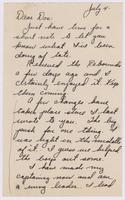 July 4.
Dear Doc:
Just have time for a
short note to let you
know what I've been
doing of late.
Received the Rebounds
a few days ago and I
certainly enjoyed it. Keep
them coming.
A few changes have
taken place since I last
wrote to you. The big
push for one thing. I
was right in the middle
of it. I guess we helped
the boys out some.
I have made my
captaincy now and am
a wing leader. I lead